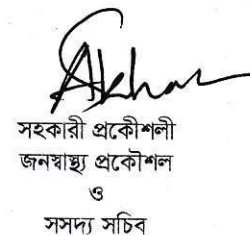 Akhar
সহকারী প্রকৌশলী
জনস্বাস্থ্য প্রকৌশল
ও
সসদ্য সচিব